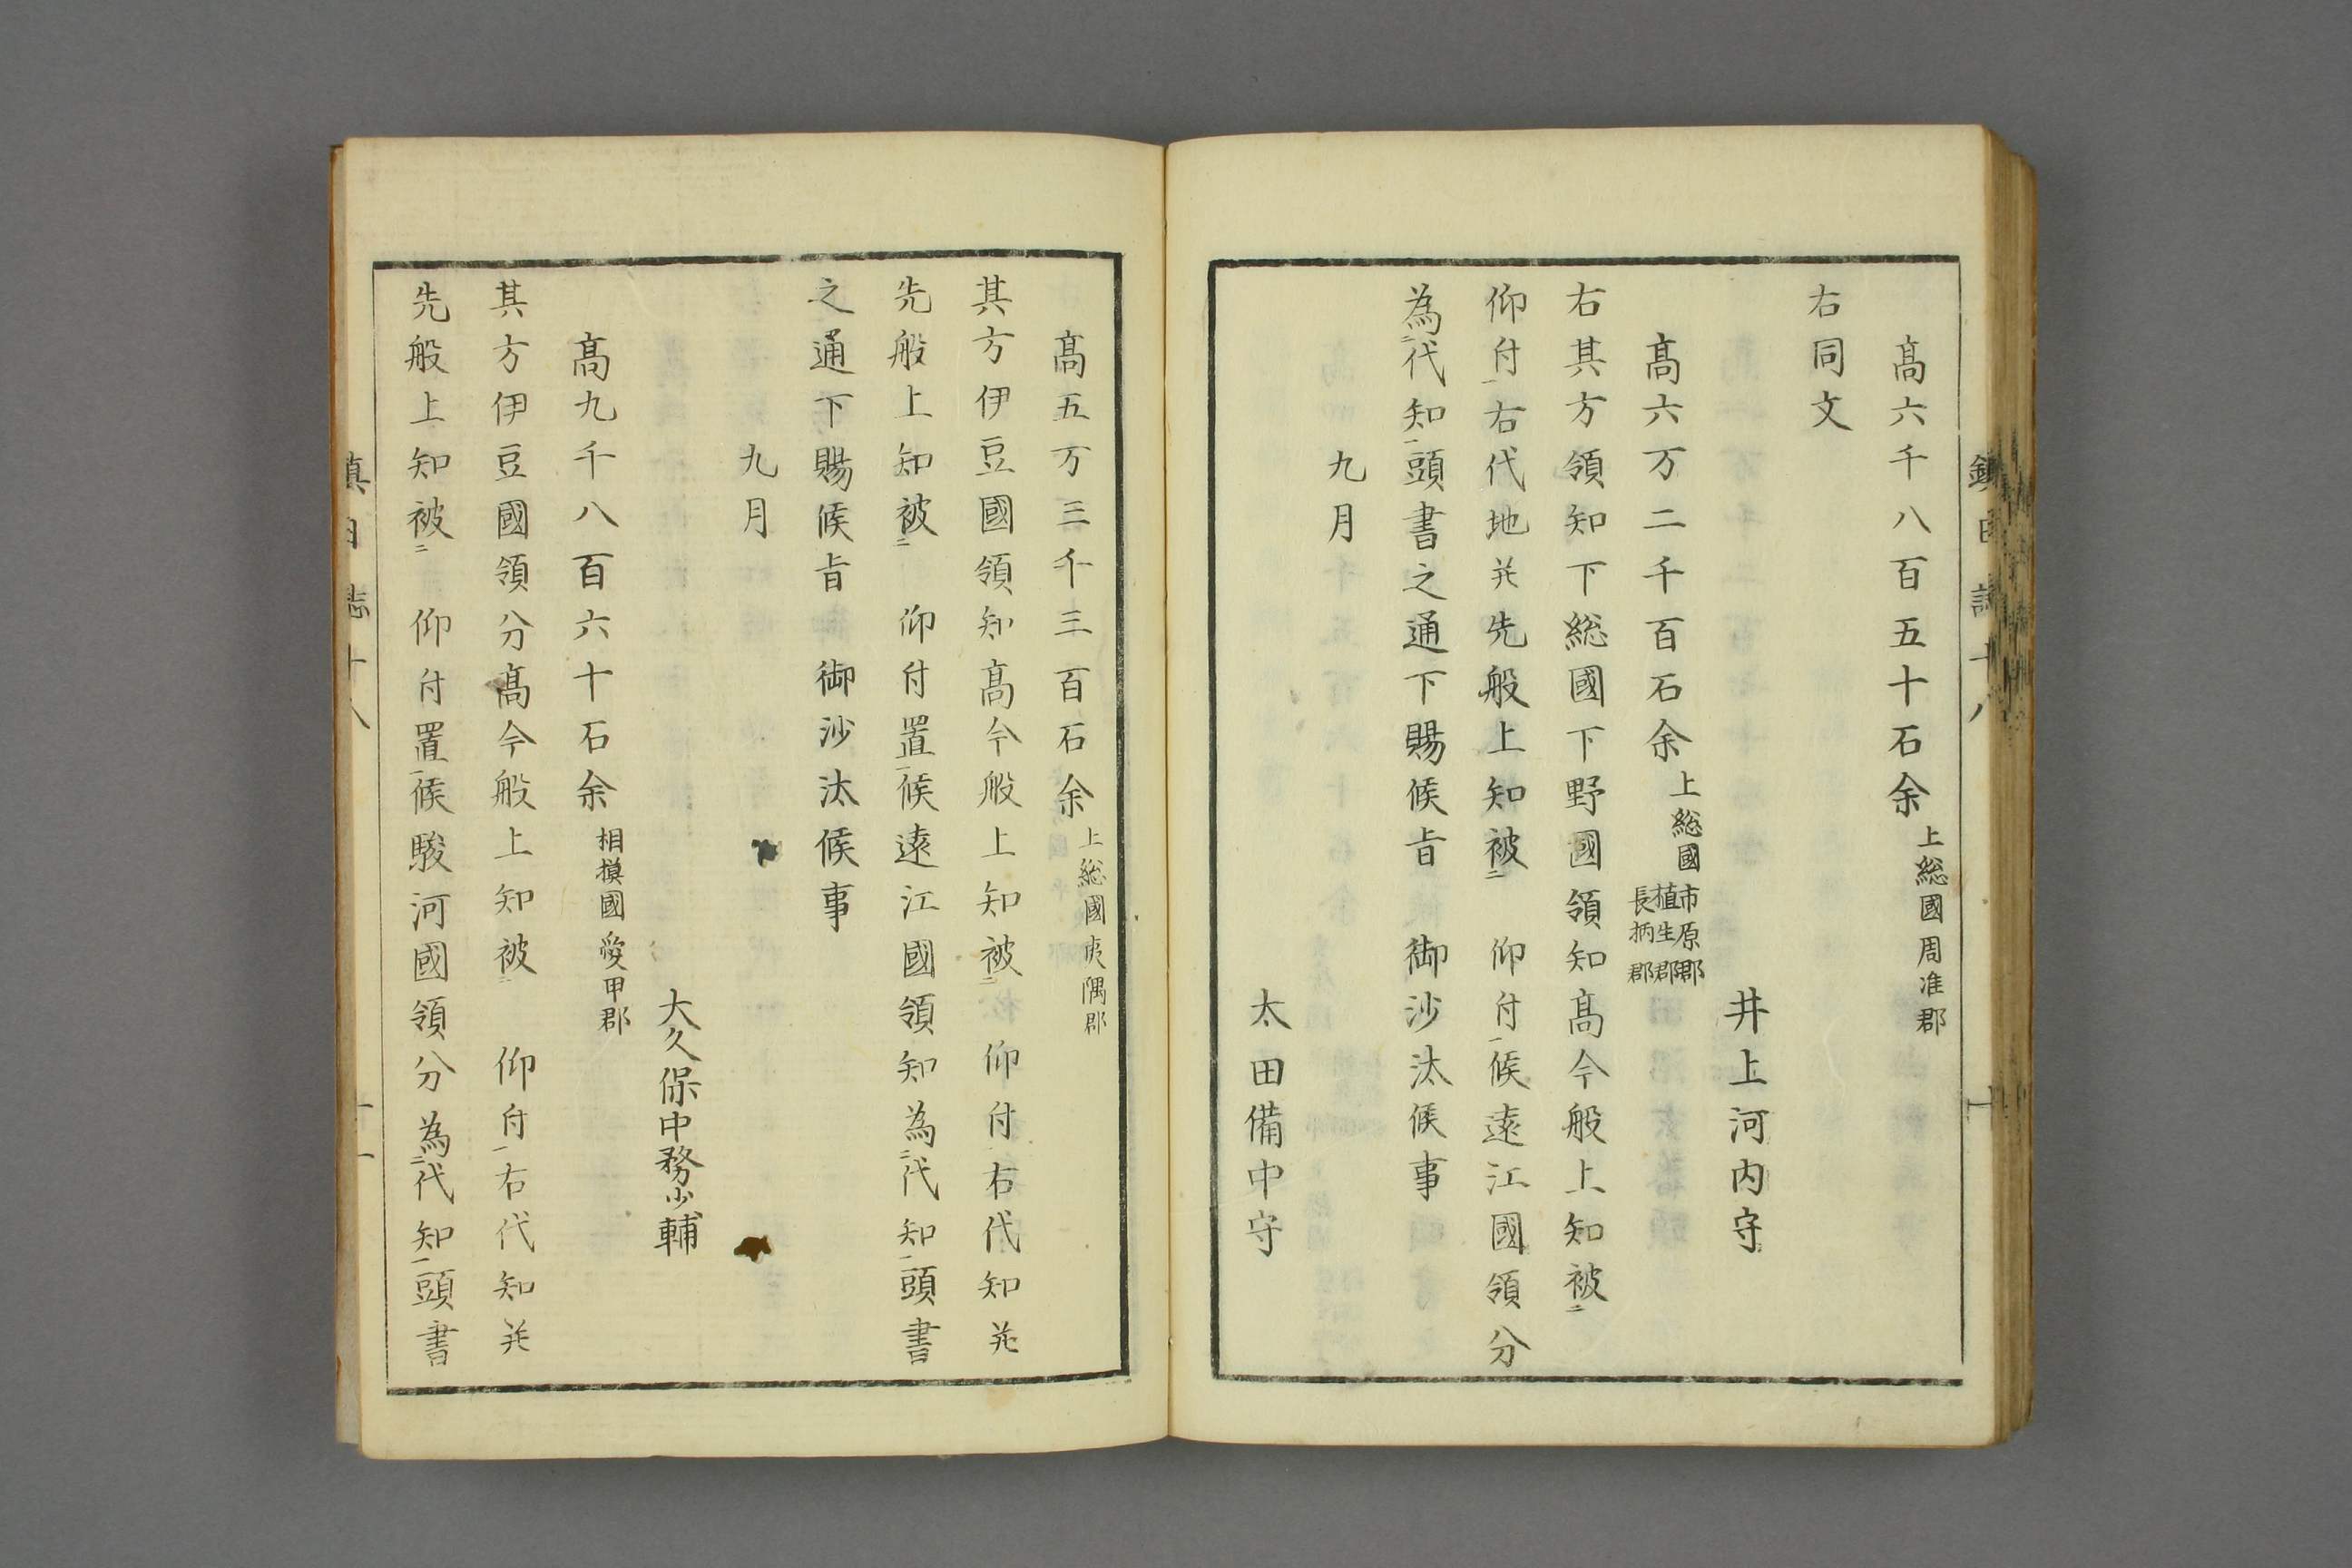 高六千八百五十石余上総國周准郡
右同文
井上河内守
高六万二千百石余上総國市原郡植生郡長柄郡
右其方領知下総國下野國領知高今般上知被二
仰付一右代地并先般上知被二　仰付一候遠江國領分
為二代知一頭書之通下賜候旨　御沙汰候事
九月
太田備中守
高五万三千三百石余上総國夷隅郡
其方伊豆國領知高今般上知被二　仰付一右代知并
先般上知被二　仰付置一候遠江國領知為二代知一頭書
之通下賜候旨　御沙汰候事
九月
大久保中務少輔
高九千八百六十石余相摸國愛甲郡
其方伊豆國領分高今般上知被二　仰付一右代知并
先般上知被二　仰付置一候駿河國領分為二代知一頭書